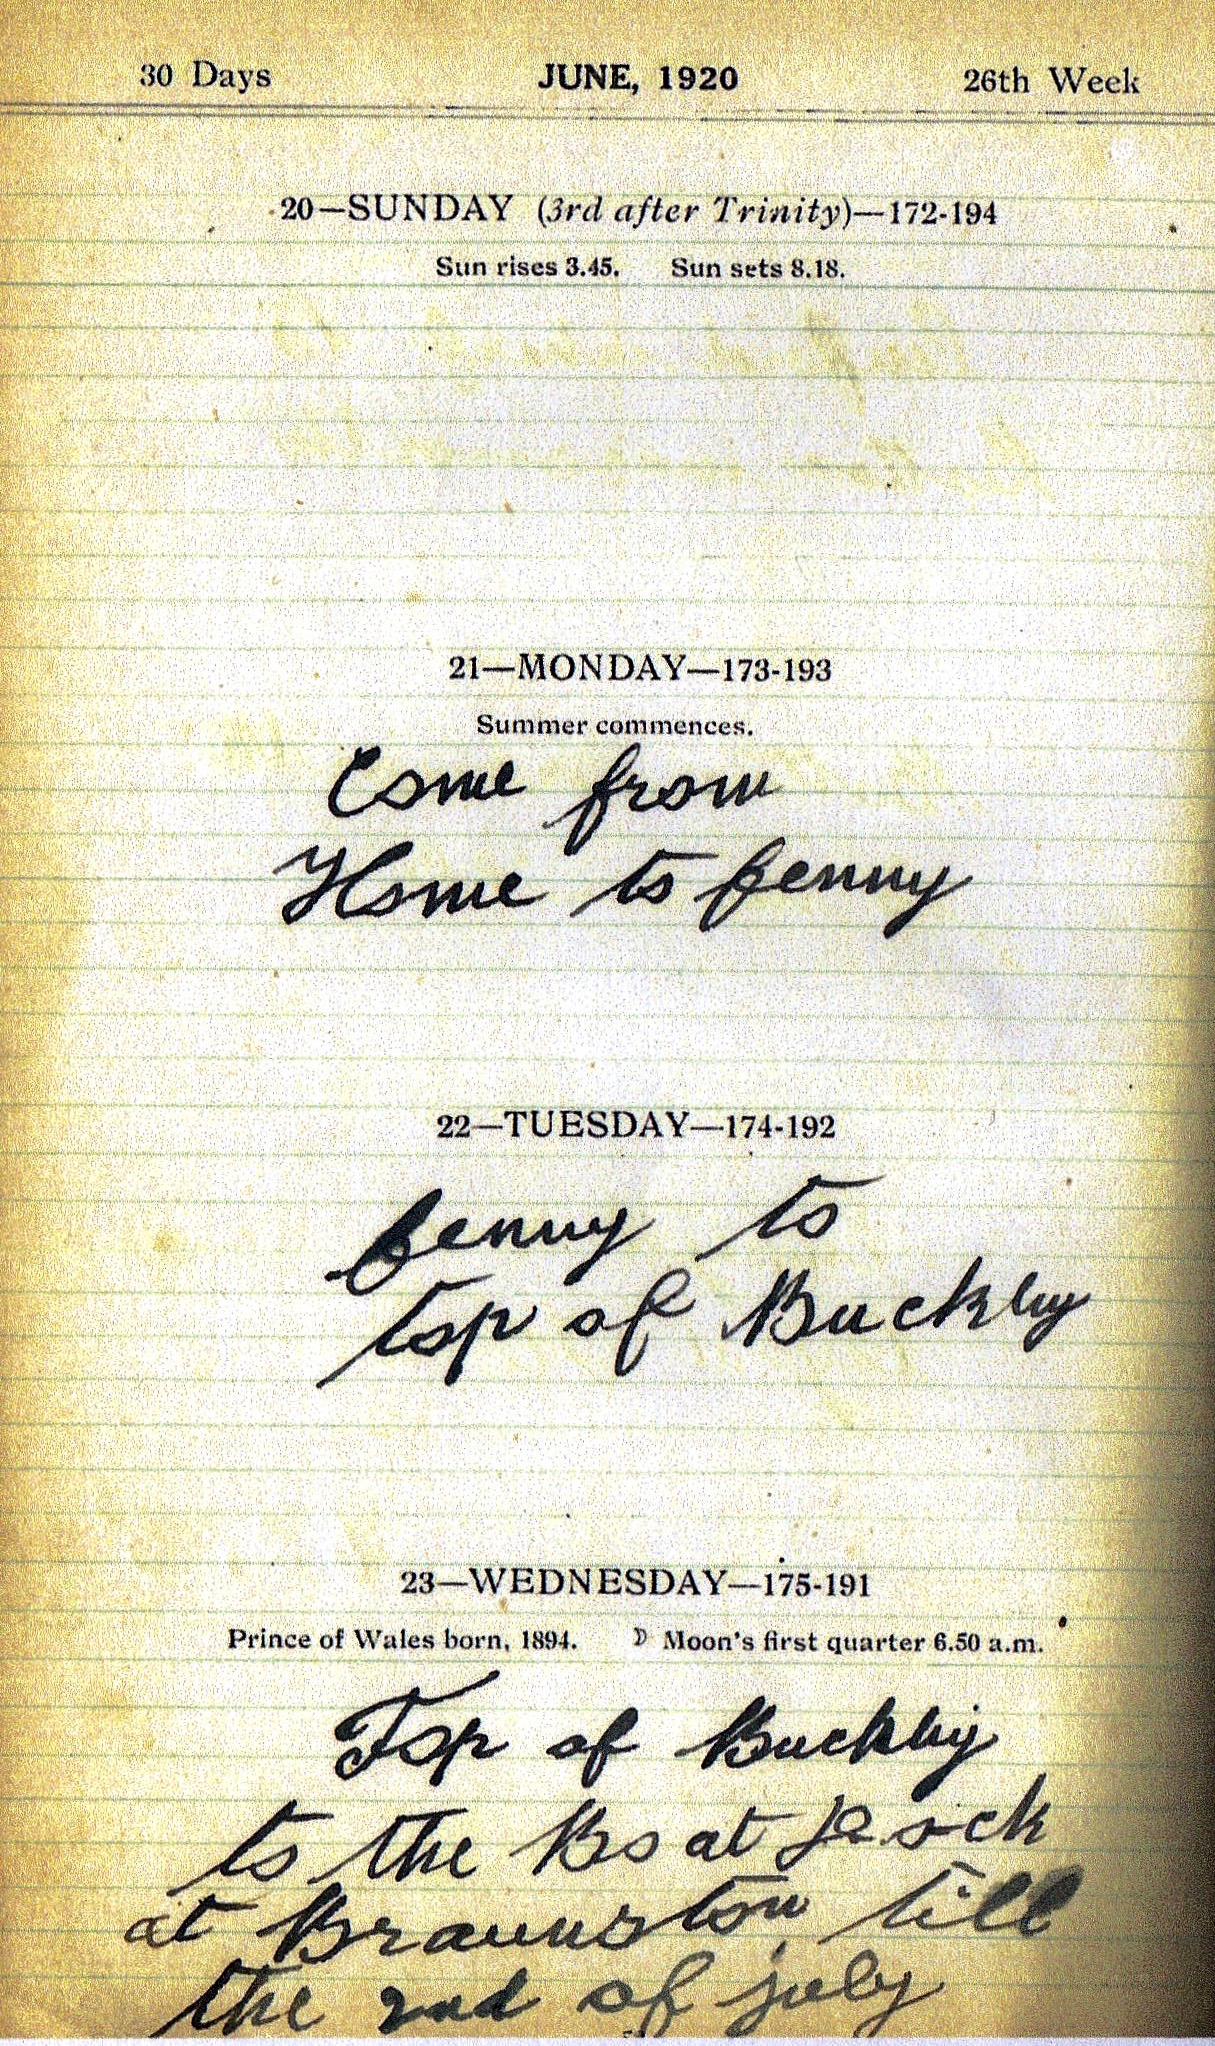 30 Days JUNE, 1920 26th Week
20—SUNDAY (3rd after Trinity)—172-194
Sun rises 3.45. Sun sets 8.18.
21—MONDAY—173-193
Summer commences.
Come from
Home to fenny
22—TUESDAY—174-192
fenny to
top of Buckby
23—WEDNESDAY—175-191
Prince of Wales born, 1894. ☽ Moon's first quarter 6.50 a.m.
Top of Buckby
to the Boat Dock
at Braunston till
the 2nd of july